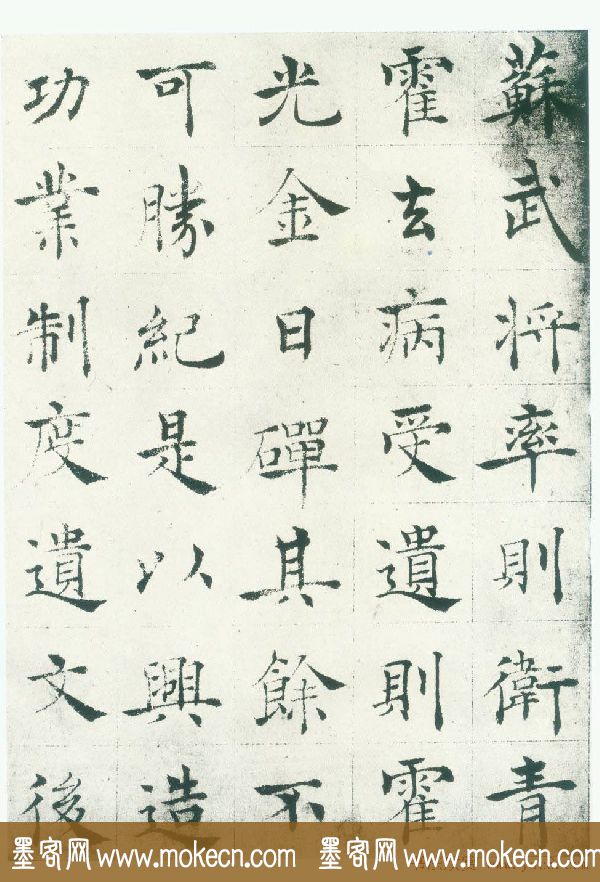 蘇武将率則衛青
霍去病受遺則霍
光金日磾其餘不
可勝紀是以興造
功業制度遺文後
墨客网 www.mokecn.com 墨客网 www.mokecn.com